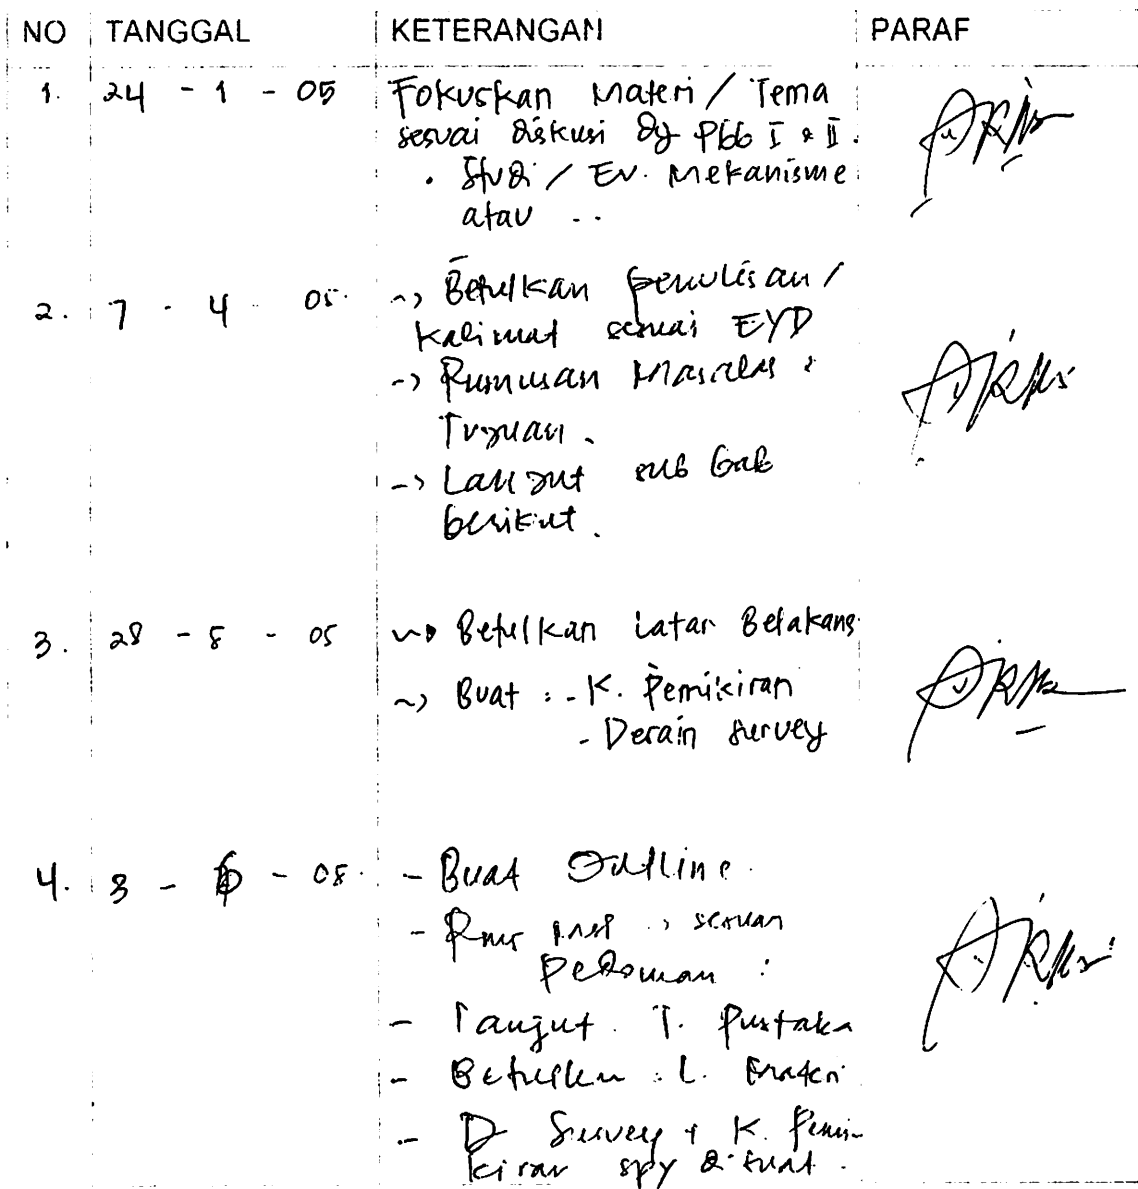 NO TANGGAL KETERANGAN PARAF
1. 24 - 1 - 05 Fokuskan Materi / Tema
sesuai diskusi dg Pbb I & II.
. Studi / Ev. Mekanisme
atau ..
2. 7 - 4 - 05. ~> Betulkan penulisan /
kalimat sesuai EYD
-> Rumusan Masalah :
Tujuan .
-> Lanjut sub bab
berikut .
3. 28 - 5 - 05 ~> Betulkan Latar Belakang
~> Buat : - K. Pemikiran
- Desain Survey
4. 3 - 6 - 05 - Buat Outline
- sesuai
Pedoman :
- Lanjut T. Pustaka
- Betulkan : L.
- D Survey + K. Pemi-
kiran spy dibuat .